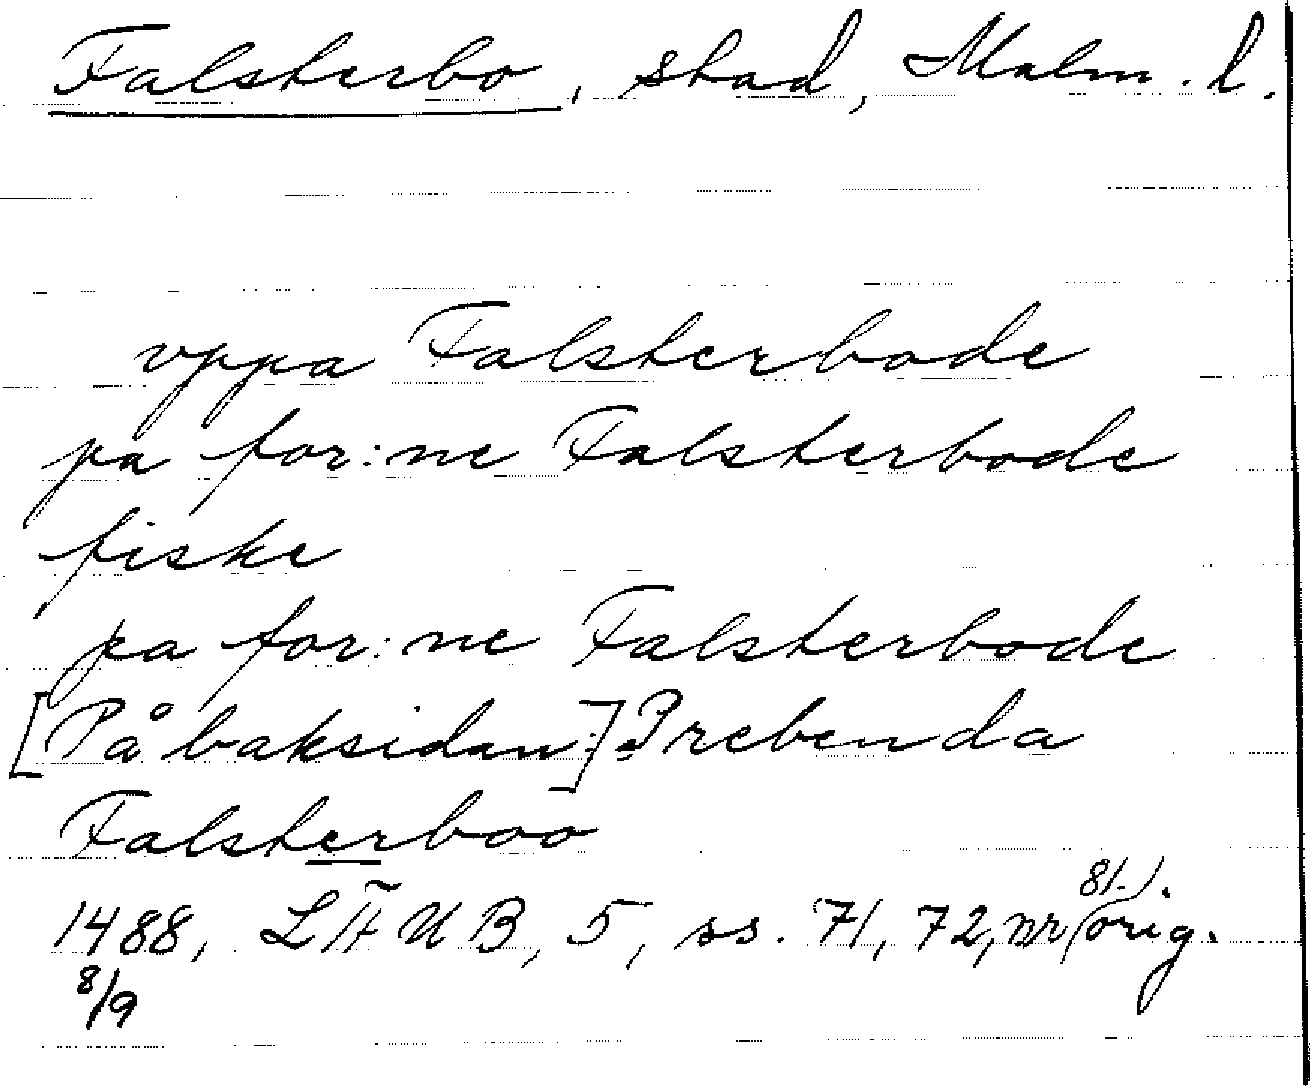 Falsterbo, stad, Malm. l.
vppa Falsterbode
pa for:ne Falsterbode
fiske
pa for:ne Falsterbode
[På baksidan:] Prebenda
Falsterboo
1488, LÄUB, 5, ss. 71, 72, nr 81. (orig.).
8/9